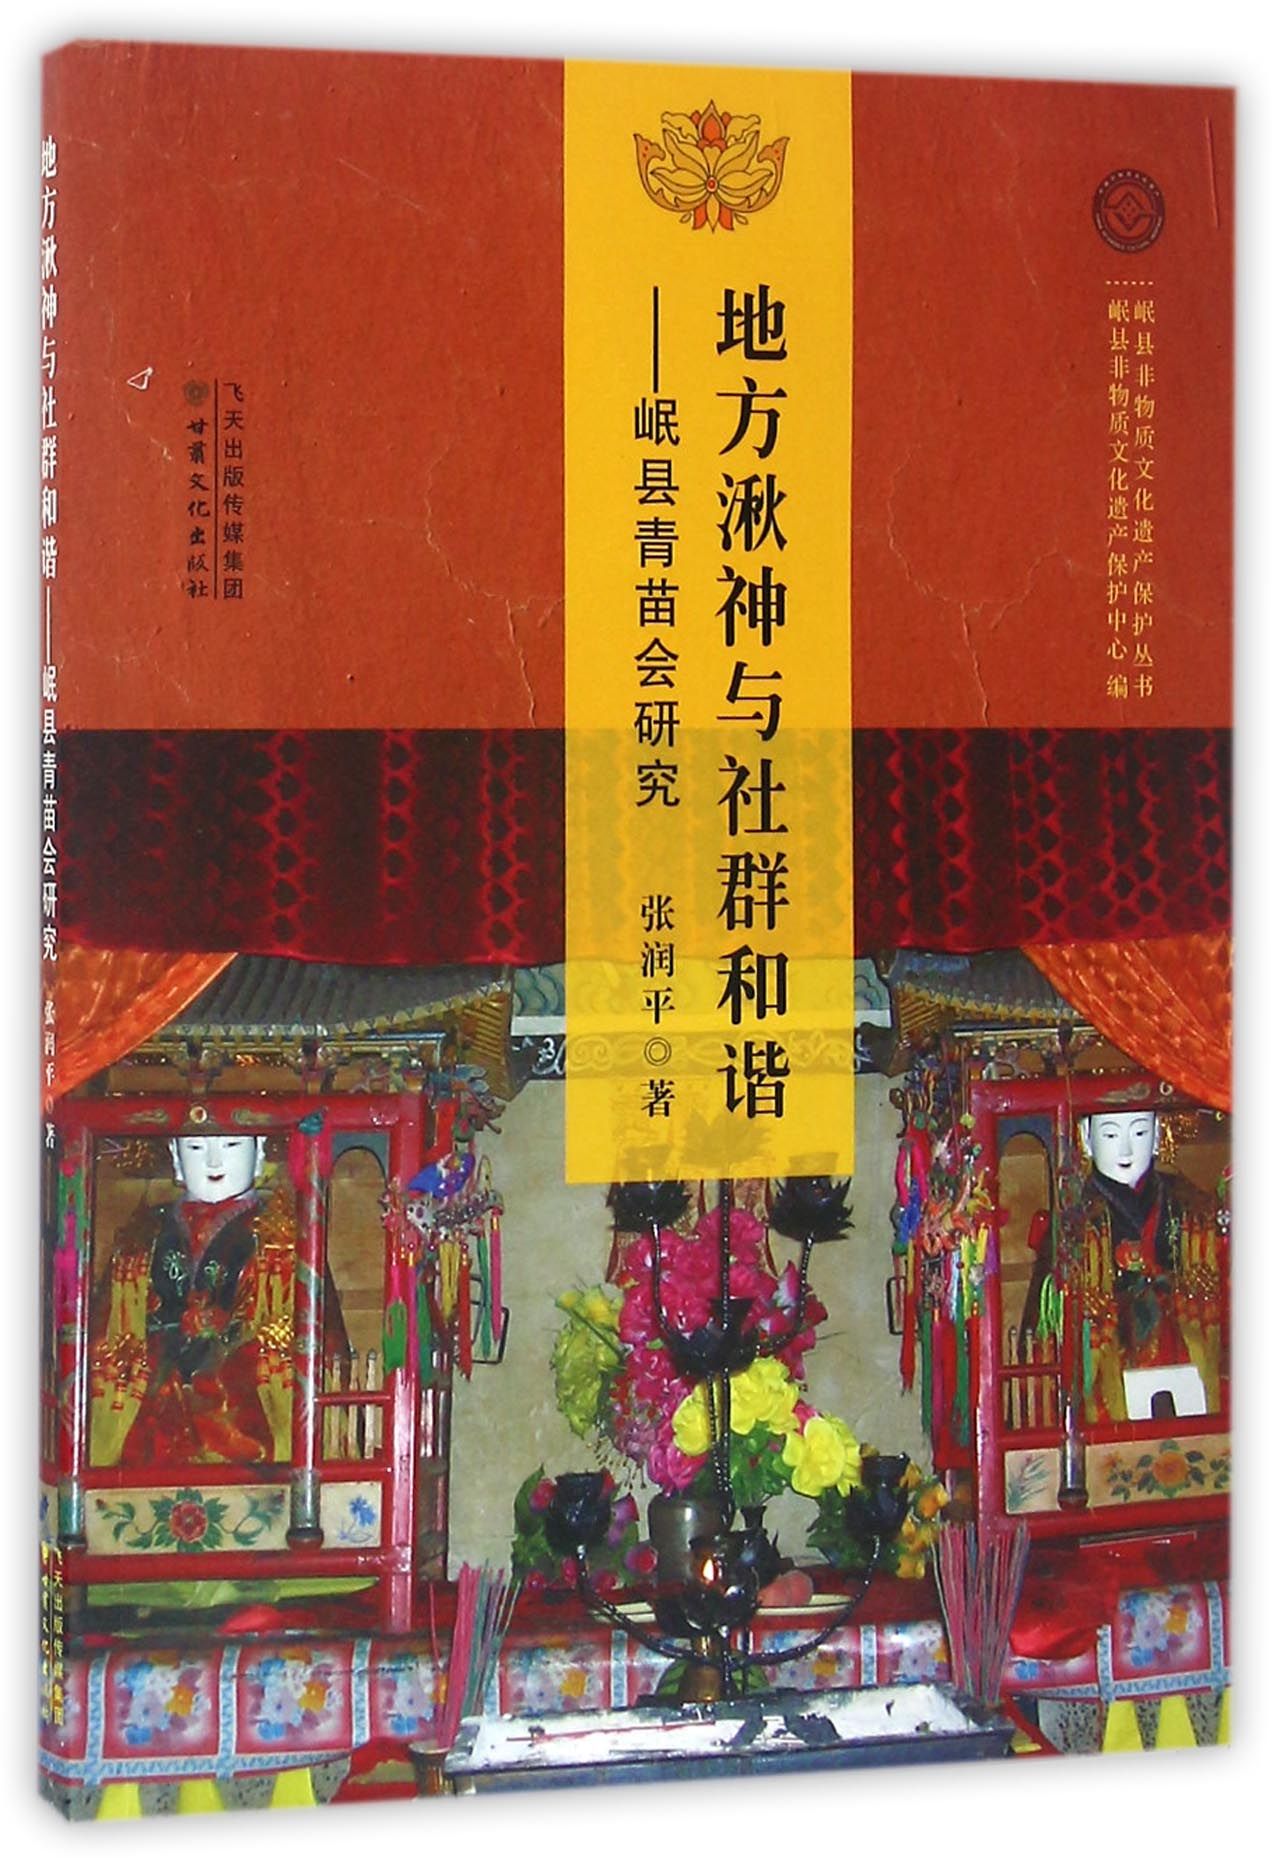 地方湫神与社群和谐
——岷县青苗会研究
张润平◎著
岷县非物质文化遗产保护丛书
岷县非物质文化遗产保护中心 编
飞天出版传媒集团
甘肃文化出版社
地方湫神与社群和谐——岷县青苗会研究 张润平◎著
飞天出版传媒集团
甘肃文化出版社